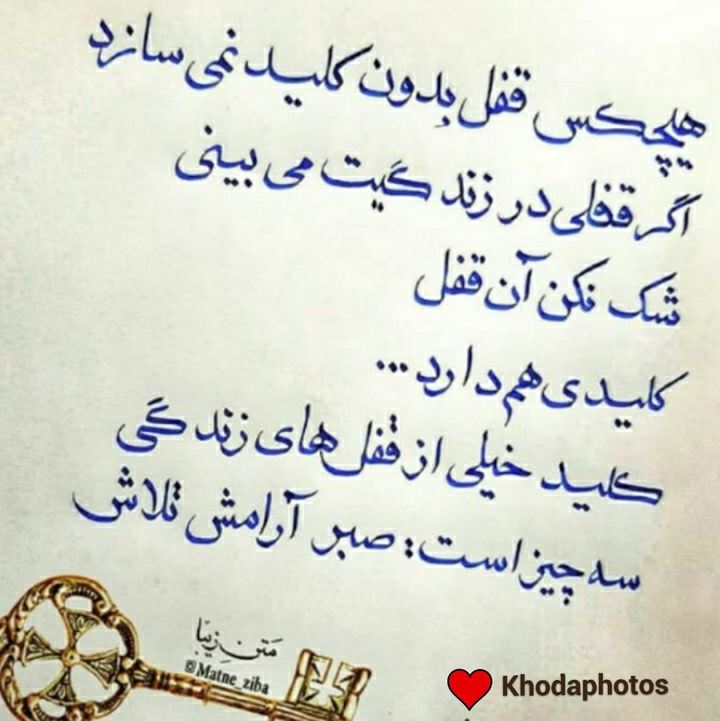 هیچکس قفل بدون کلید نمی سازد
اگر قفلی در زندگیت می بینی
شک نکن آن قفل
کلیدی هم دارد ...
کلید خیلی از قفل های زندگی
سه چیز است: صبر آرامش تلاش
متن زیبا
@Matne_ziba
Khodaphotos